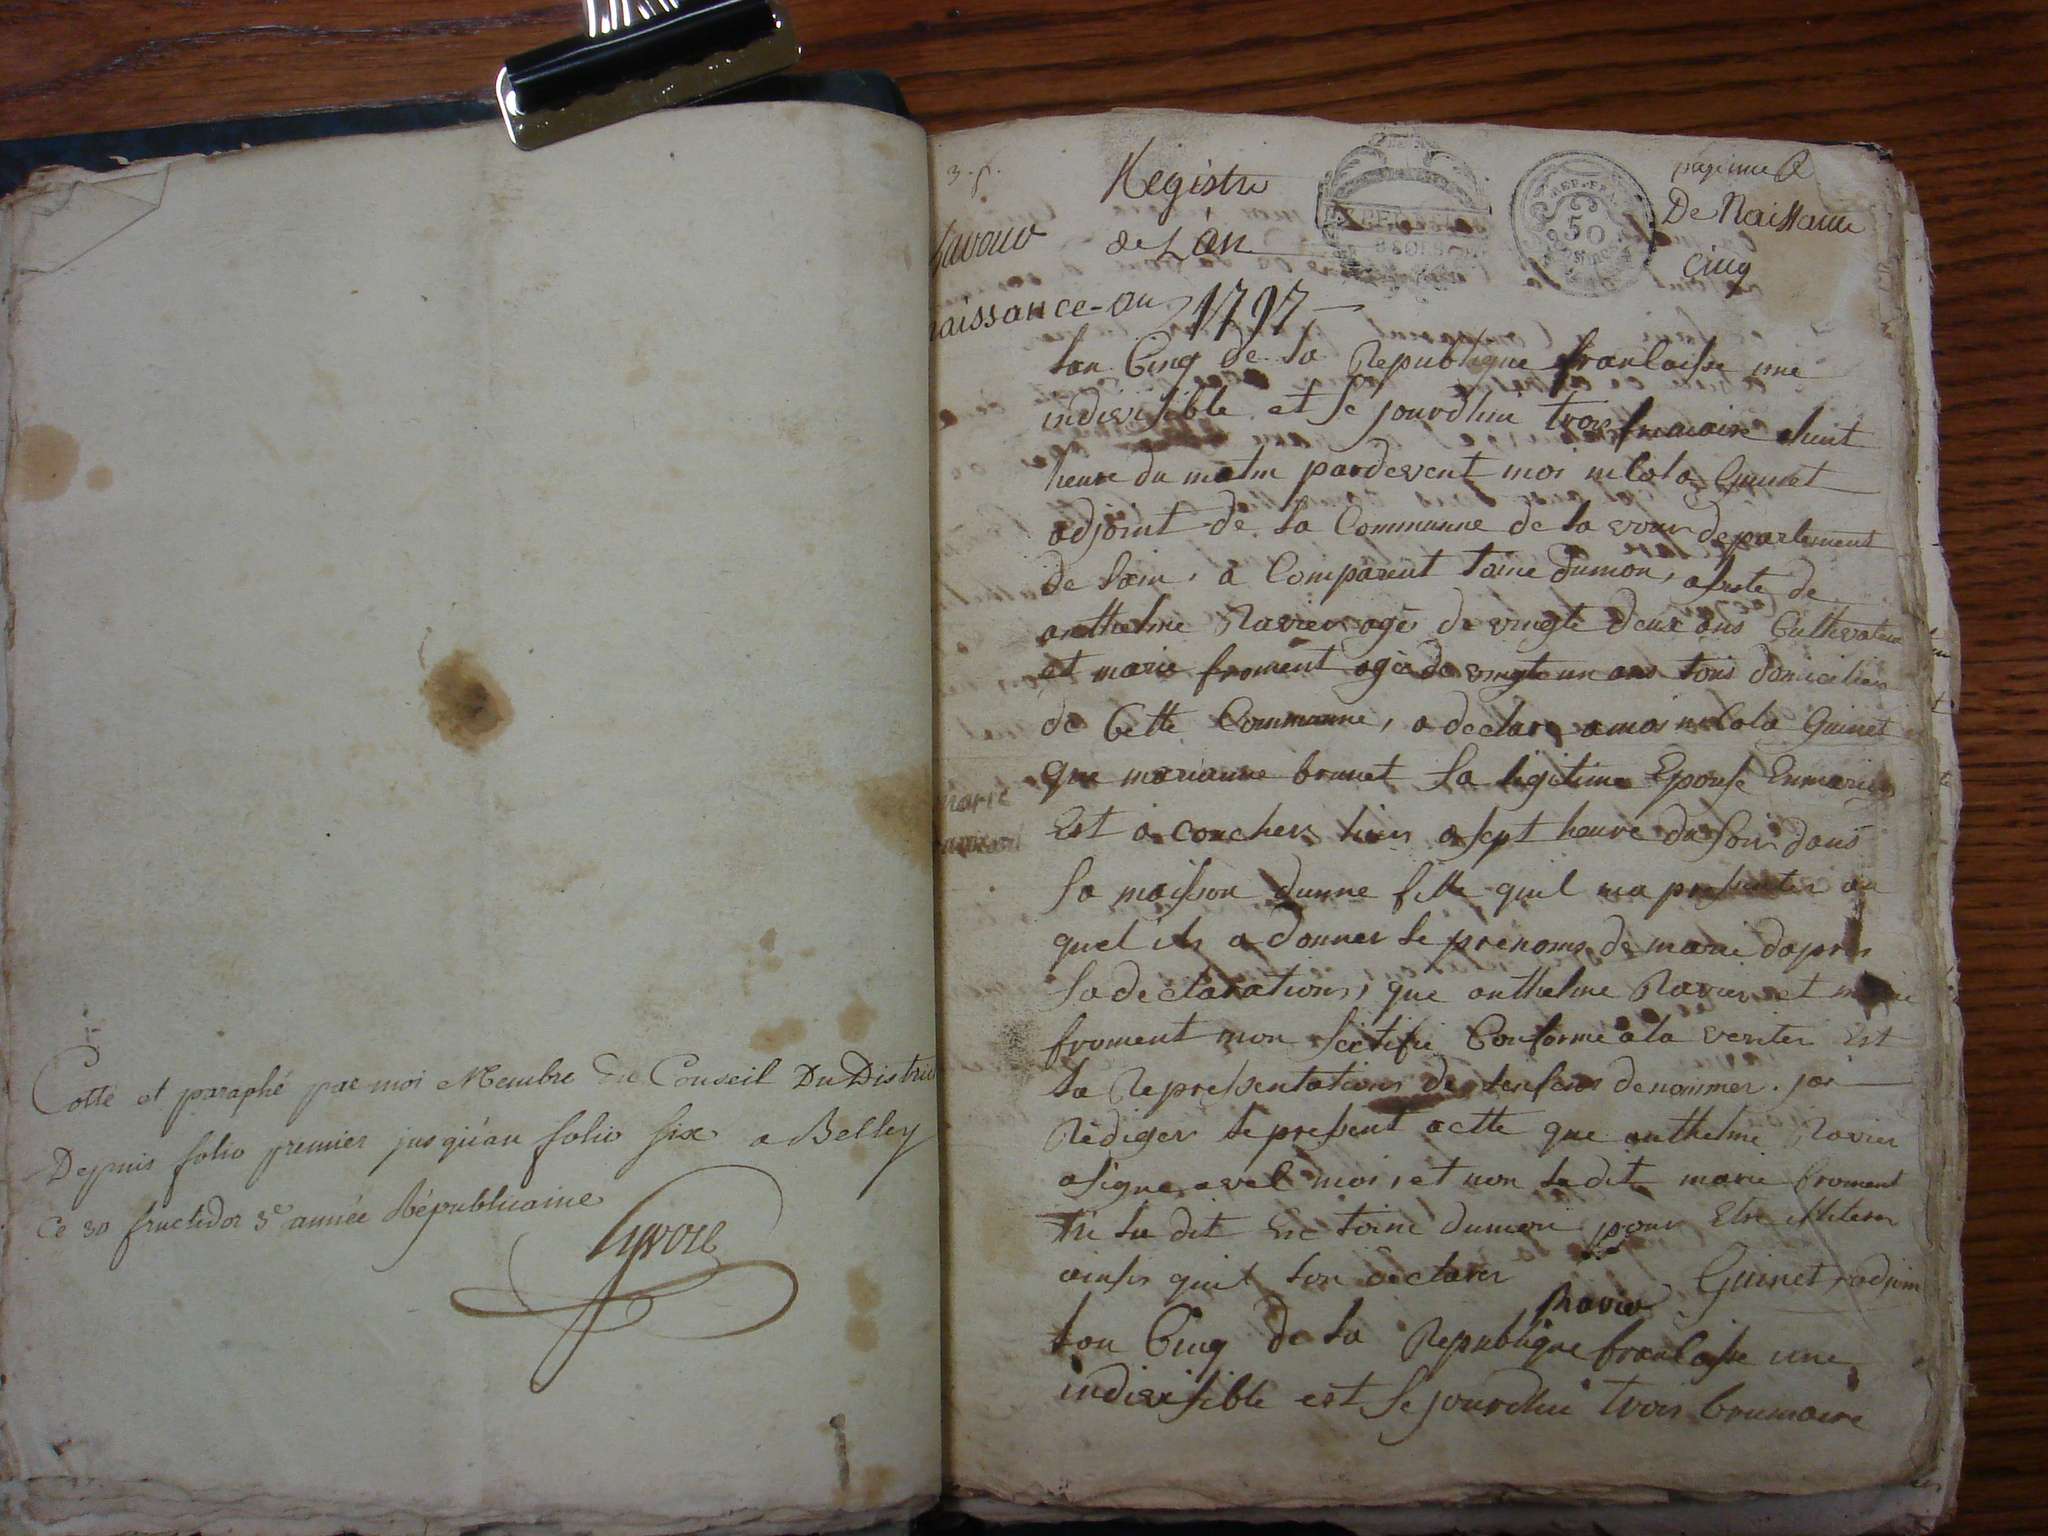 Cotté et paraphé par moi Membre du Conseil Du District
Depuis folio premier jusqu'au folio six a Belley
Ce 30 fructidor 3e année Républicaine
3. f.
Registre
de L'an
pagemier
De Naissance
cinq
REP. FRA
50
Lavour
naissance-an 1797
lan Cinq de la Republique francaisse une
indivisible et le jourdhui trois frimaire a huit
heure du matin pardevent moi nicola Guinet
adjoint de la Commune de la vour departement
de lain, a Comparut toine dumon, asiste de
anthelme Ravier agés de vingte deux ans Cultivateur
et marie froment agée de vingte un ans tous domicilies
de Cette Commune, a declare a moi nicola Guinet
que marianne brunet sa legitime Epouse Enmaries
Est a coucher hier a sept heure du soir dans
sa maison dunne fille quil ma presenter au
quel ils a donner le prenoms de marie dapres
sa declarations, que anthelme Ravier et marie
froment mon sertifie Conforme a la veriter Est
la Representations de lenfans denommer. jai
Rèdiger le present actte que anthelme Ravier
a signe avec moi, et non la dite marie froment
ni le dit toine dumon pour Etre illiteres
ainsis quil lon declares Guinet, adjoin
Ravier
lan Cinq de la Republique francaisse une
indivisible est le jourdhui trois brumaire
marie